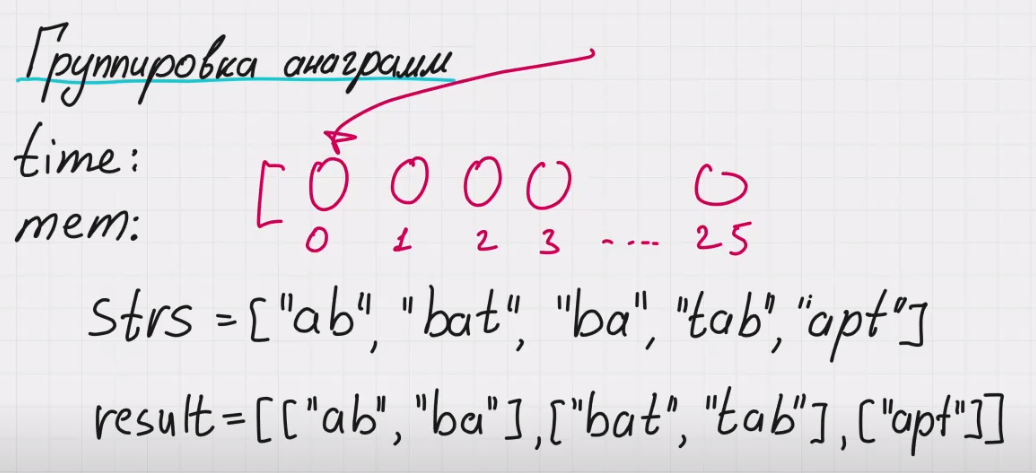 Группировка анаграмм
time:
[ 0 0 0 0 0
mem:
0 1 2 3 ..... 25
Strs = ["ab", "bat", "ba", "tab", "apt"]
result = [["ab", "ba"], ["bat", "tab"], ["apt"]]